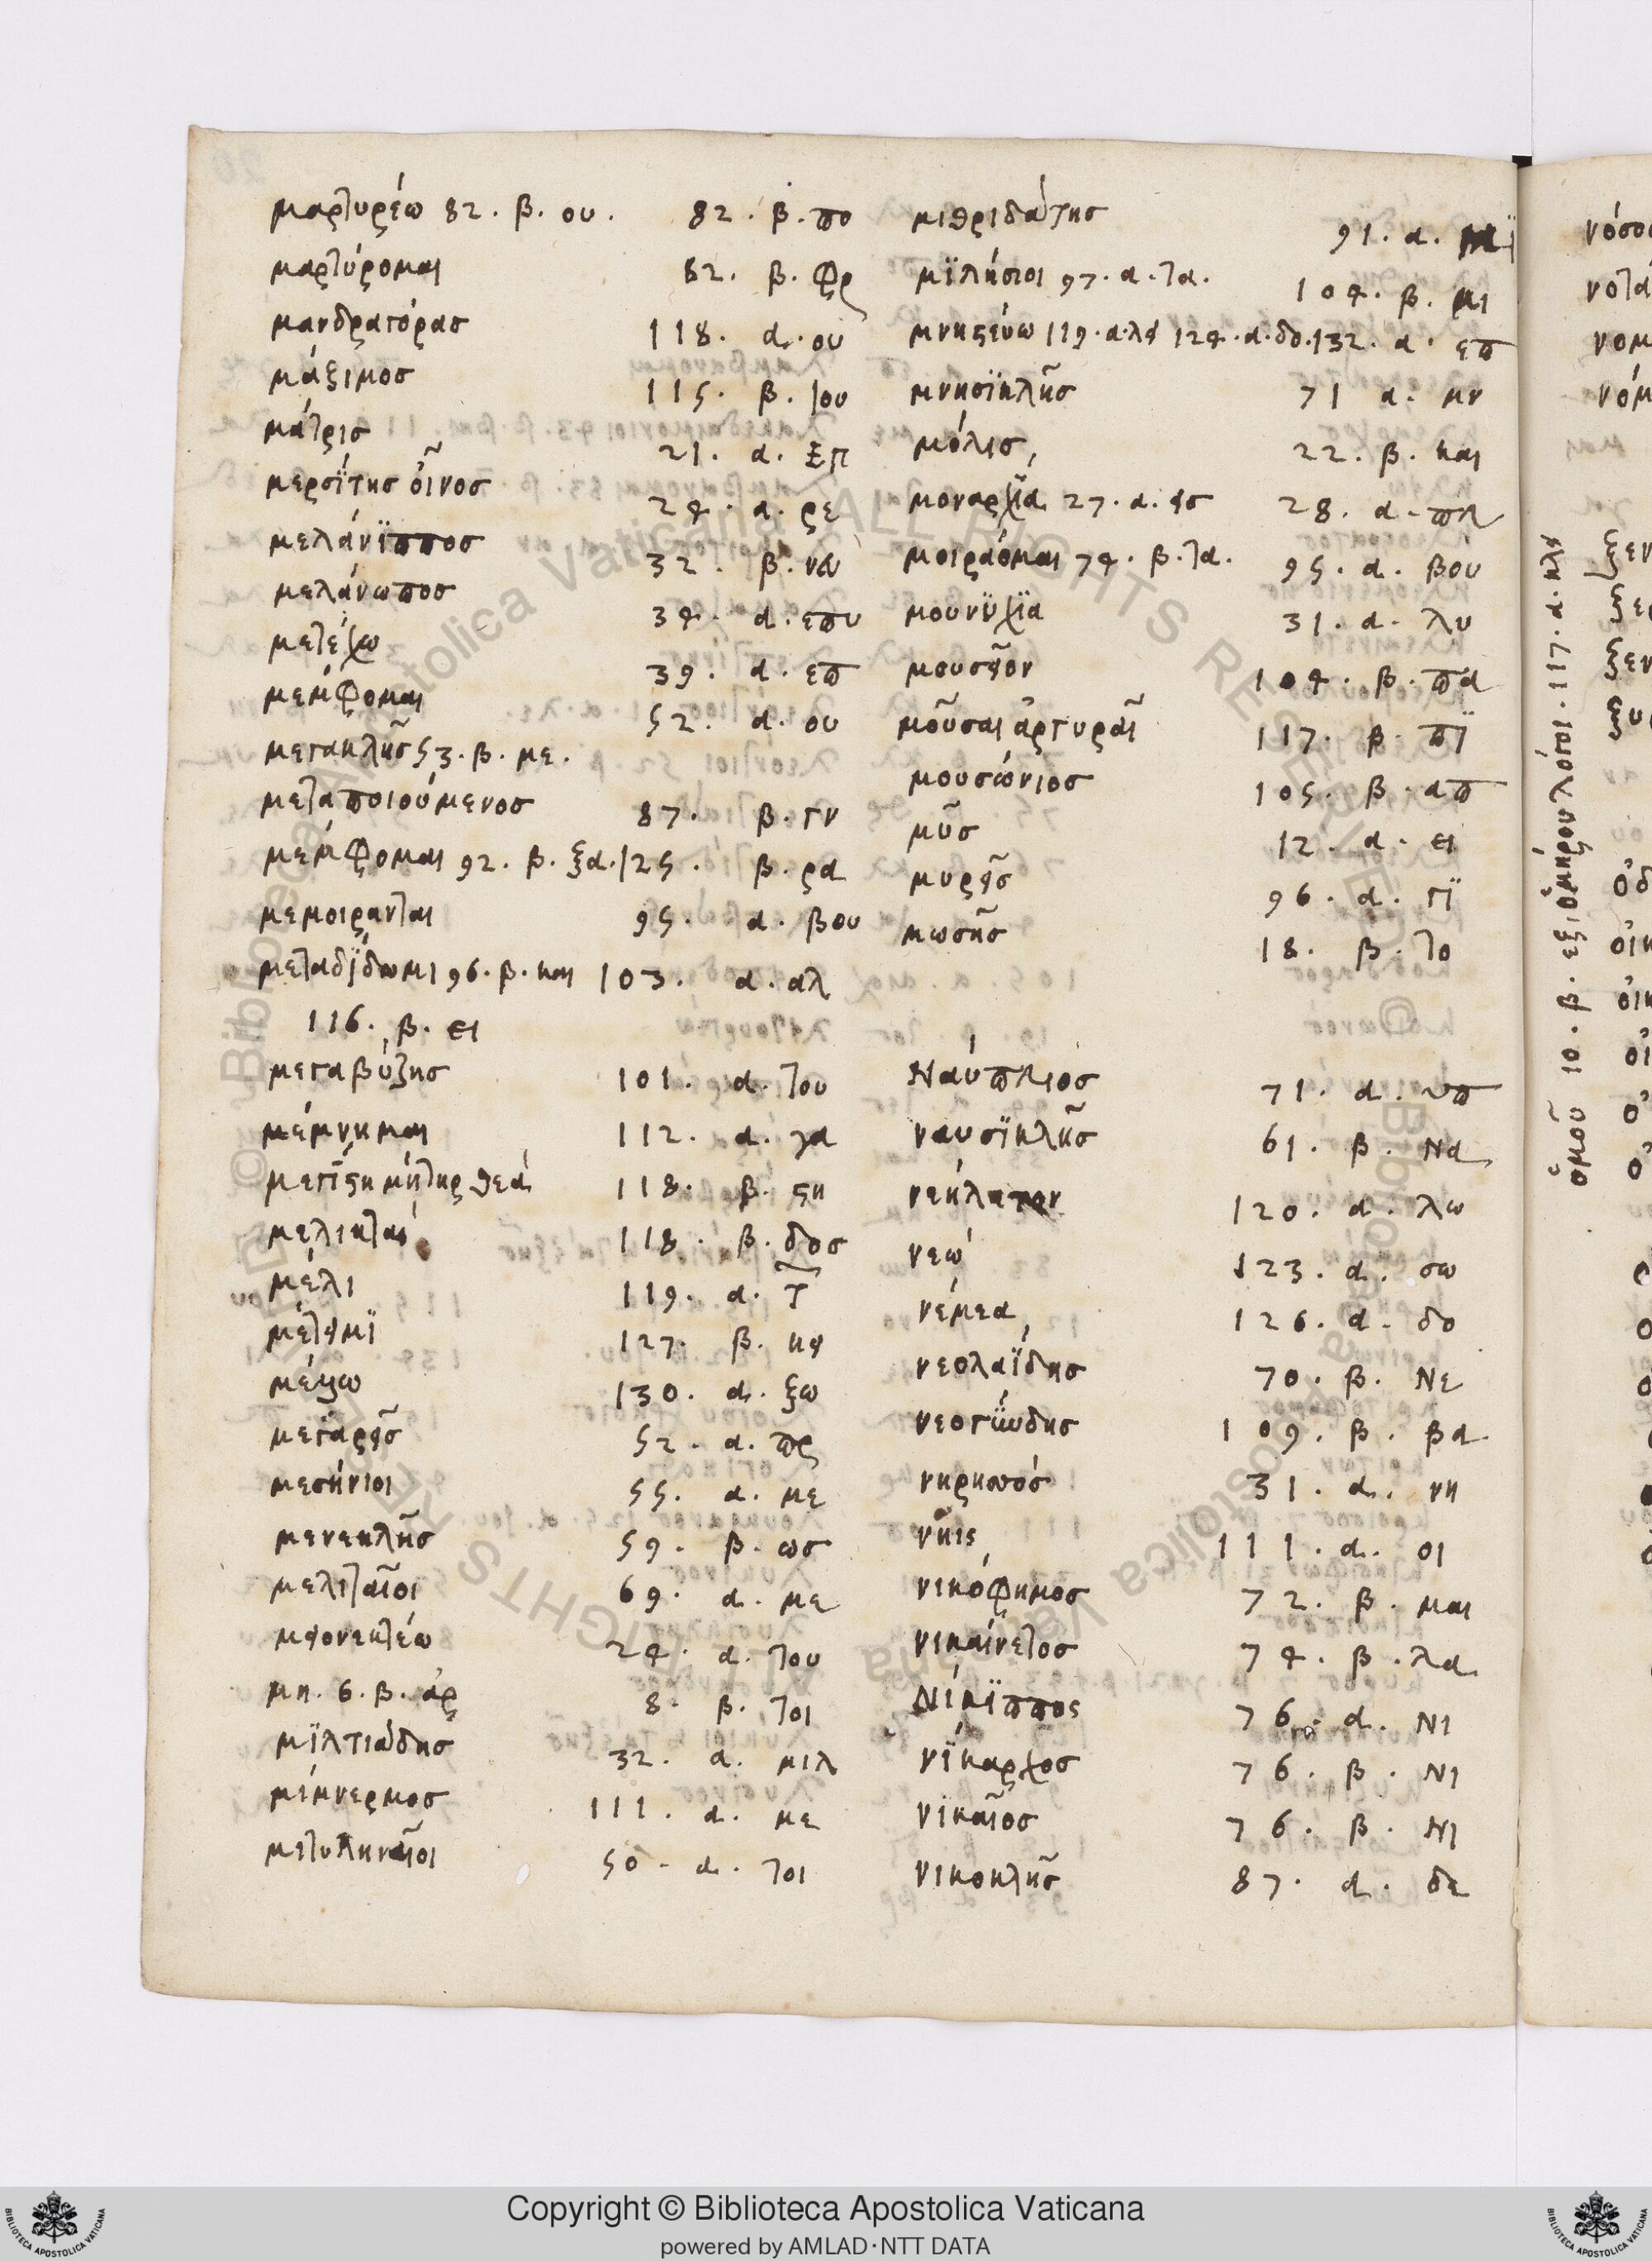 μαρτυρέω 82. β. ου. 82. β. πο
μαρτύρομαι 82. β. φρ
μανδραγόρας 118. α. ου
μάξιμος 115. β. του
μάτρις 21. α. ΞΠ
μερσΐτης οἶνος 24. α. ρε
μελάνϊππος 32. β.
μελάνωπος 34. α. επυ
μετέχω 39. α. επ
μέμφομαι 52. α. ου
μεγακλῆς 53. β. με.
μεταποιούμενος 87. β. γν
μέμφομαι 92. β. ξα. 125. β. ρα
μεμοιρανται 95. α. βου
μεταδΐδωμι 96. β. και 103. α. αλ
116. β. ει
μεγαβύζης 101. α. του
μέμνημαι 112. α. γα
μεγΐστη μήτηρ θεά 118. β. στη
μελικταί 118. β. δος
μέλι 119. α. τ
μέτειμϊ 127. β. κει
μέλλω 130. α. ξω
μεγαρεῖς 52. α. πρ
μεσήνιοι 55. α. με
μενεκλῆς 59. β. ως
μελιταῖοι 69. α. με
μειονεκτέω 24. α. του
μη. 6. β. ἀρ 8. β. τοι
μϊλτιάδης 32. α. μιλ
μίμνερμος 111. α. με
μιτυληναῖοι 50. α. τοι
μιθριδάτης 91. α.
μϊλήσιοι 97. α. τα. 104. β. μι
μνηστεύω 119. α. λει 124. α. δο. 132. α. επ
μνησϊκλῆς 71 α. μν
μόλις 22. β. και
μοναρχΐα 27. α. εις 28. α. πλ
μοιράομαι 74. β. τα. 95. α. βου
μουνϋχΐα 31. α. λυ
μουσεῖον 104. β. πα
μοῦσαι ἀργυραῖ 117. β. πϊ
μουσώνιος 105. β. απ
μῦς 12. α. ει
μυρεῖς 96. α. γϊ
μωσῆς 18. β. το
Ναύπλιος 71. α. υπ
ναυσϊκλῆς 61. β. Να
νεήλατον 120. α. λω
νεώ 123. α. σω
νέμεα 126. α. δο
νεολαΐδης 70. β. Νε
νεογϊώδης 109. β. βα
νηρηονός 31. α. νη
νῆις 111. α. οι
νικόφημος 72. β. μαι
νικαίνετος 74. β. λα
Νίκϊππος 76. α. Νι
νΐκαρχος 76. β. Νι
νικαῖος 76. β. Νι
νικοκλῆς 87. α. δε
ὁμοῦ 10. β. εξι ὁμήρου λόγοι. 117. α. κλει
Copyright © Biblioteca Apostolica Vaticana
powered by AMLAD·NTT DATA